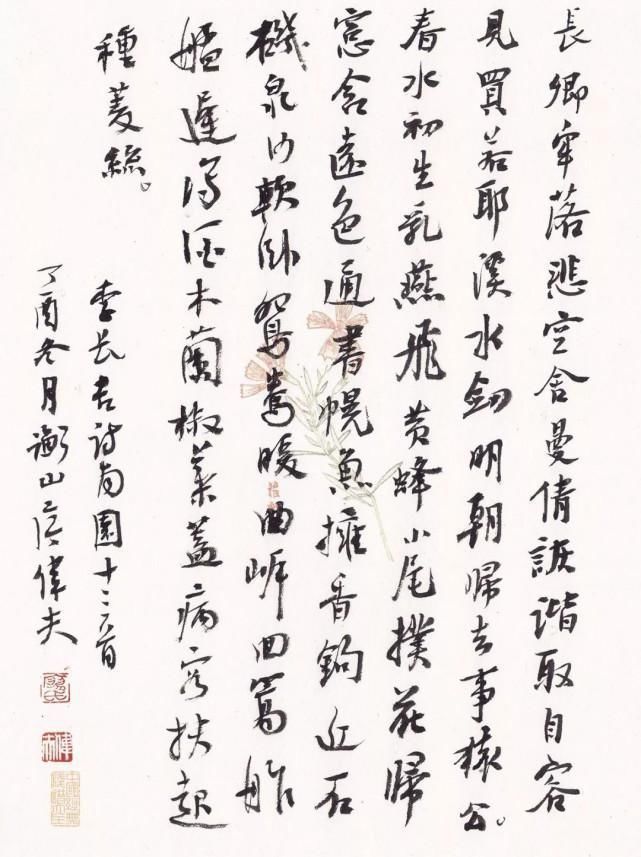 長卿牢落悲空舍曼倩詼諧取自容
見買若耶溪水劒明朝歸去事猿公。
春水初生乳燕飛黃蜂小尾撲花歸
窓含遠色通書幌魚擁香鈎近石
磯泉沙軟臥鴛鴦暖曲岸回篙舴
艋遲瀉酒木蘭椒葉蓋病容扶起
種菱絲。
李長吉詩南園十三首
丁酉冬月衡山偉夫